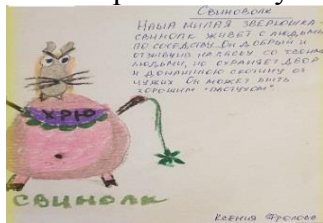 Свиноволк
Наша милая зверюшка -
свинолк живёт с людьми
по соседству. Он добрый и
отзывчив на ласку со своими
людьми, но охраняет двор
и домашнюю скотину от
чужих. Он может быть
хорошим "пастухом".
ХРЮ
СВИНОЛК
Ксения Фролова